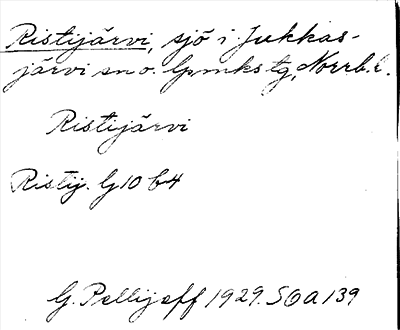 Ristijärvi, sjö i Jukkas-
järvi sn o. lpmks tg, Norrb. l.
Ristijärvi
Ristij. G10 b4
G. Pellijeff 1929. SOA 139